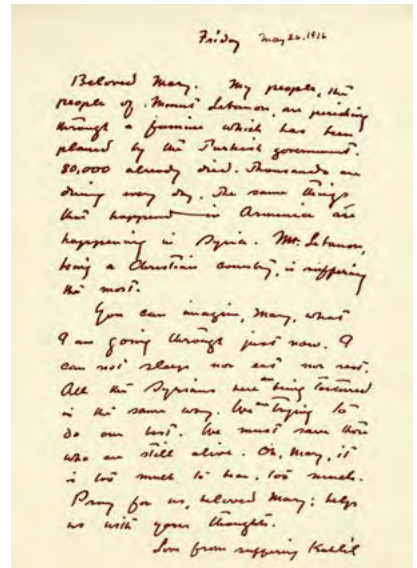 Friday May 26.1916
Beloved Mary. My people, the
people of Mount Lebanon, are perishing
through a famine which has been
planed by the Turkish government.
80,000 already died. Thousands are
dying every day. The same things
that happend in Armenia are
happening in Syria. Mt. Lebanon,
being a Christian country, is suffering
the most.
You can imagin, Mary, what
I am going through just now. I
can not sleep nor eat nor rest.
All the Syrians here are being tortured
in the same way. We are trying to
do our best. We must save those
who are still alive. Oh, Mary, it
is too much to bear, too much.
Pray for us, beloved Mary; help
us with your thoughts.
Love from suffering Kahlil